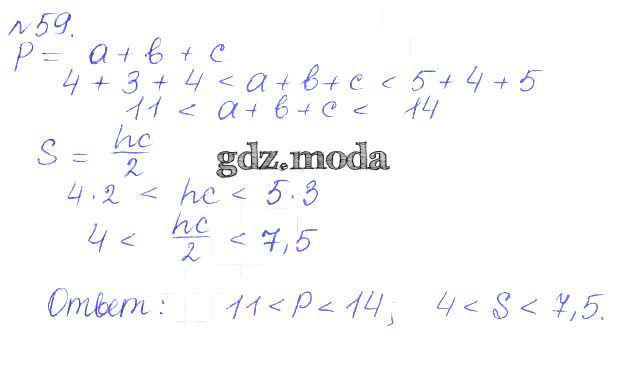 №59.
P = a + b + c
4 + 3 + 4 < a + b + c < 5 + 4 + 5
11 < a + b + c < 14
S = hc/2
gdz.moda
4·2 < hc < 5·3
4 < hc/2 < 7,5
Ответ: 11 < P < 14; 4 < S < 7,5.